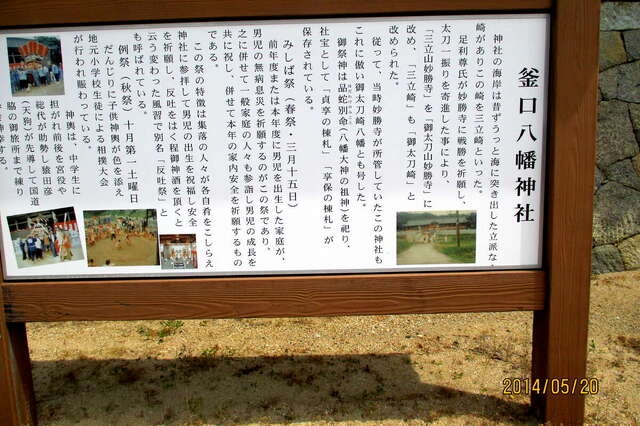 釜口八幡神社
神社の海岸は昔ずうっと海に突き出した立派な
崎がありこの崎を三立崎といった。
足利尊氏が妙勝寺に戦勝を祈願し、
太刀一振りを寄進した事により、
「三立山妙勝寺」を「御太刀山妙勝寺」に
改め、「三立崎」も「御太刀崎」と
改められた。
従って、当時妙勝寺が所管していたこの神社も
これに倣い御太刀崎八幡とも号した。
御祭神は品蛇別命(八幡大神の祖神)を祀り、
社宝として「貞享の棟札」「享保の棟札」が
保存されている。
みしば祭(春祭・三月十五日)
前年度または本年度に男児を出生した家庭が、
男児の無病息災を祈願するのがこの祭であり、
之に併せて一般家庭の人々も参詣し男児の成長を
共に祝し、併せて本年の家内安全を祈願するもの
である。
この祭の特徴は集落の人々が各自肴をこしらえ
神社に参拝して男児の出生を祝福し安全
を祈願し、反吐をはく程御神酒を頂くと
云う変わった風習で別名「反吐祭」と
も呼ばれている。
例祭(秋祭)十月第一土曜日
だんじりに子供神輿が色を添え
地元小学校生徒による相撲大会
が行われ賑わっている。
神輿は、中学生に
担がれ前後を宮役や
総代が助勢し猿田彦
(天狗)が先導して国道
脇の御旅所まで練り
2014/05/20